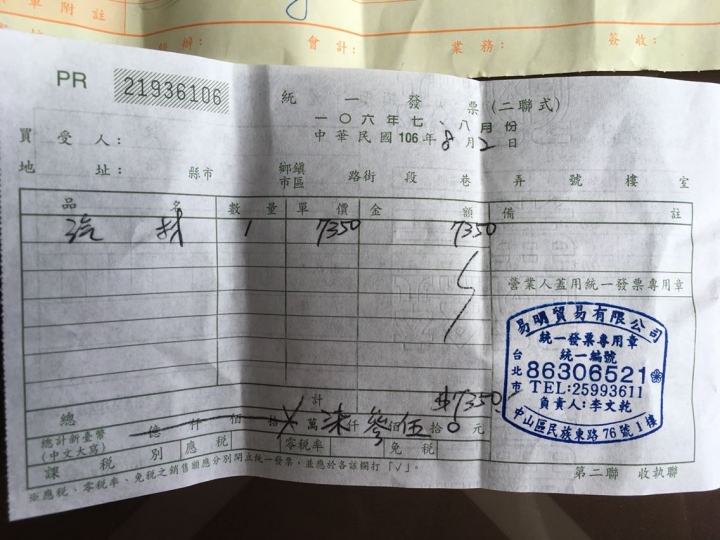 單附註
會計：
業務：
簽收：
PR 21936106
統一發票(二聯式)
一〇六年七、八月份
中華民國106年8月2日
買受人：
地址： 縣市 鄉鎮市區 路街 段 巷 弄 號 樓 室
品名 數量 單價 金額 備註
汽材 1 7350 7350
營業人蓋用統一發票專用章
易明貿易有限公司
統一發票專用章
統一編號
台北市
86306521
TEL:25993611
負責人:李文乾
中山區民族東路76號1樓
總計 $7350
總計新臺幣(中文大寫) 億 仟 佰 拾 萬 柒 仟 參 佰 伍 拾 0 元
課稅別 應稅 零稅率 免稅
※應稅、零稅率、免稅之銷售額應分別開立統一發票，並應於各該欄打「V」。
第二聯 收執聯